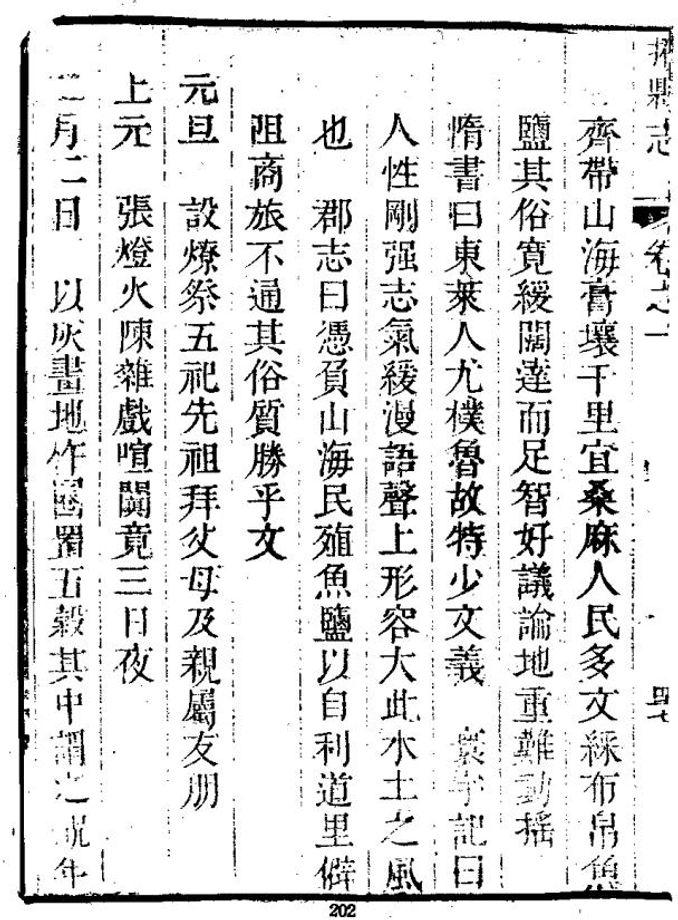 志 卷之一
齊帶山海膏壤千里宜桑麻人民多文綵布帛魚
鹽其俗寬緩闊達而足智好議論地重難動搖
隋書曰東萊人尤樸魯故特少文義 寰宇記曰
人性剛强志氣緩漫語聲上形容大此水土之風
也 郡志曰憑負山海民殖魚鹽以自利道里僻
阻商旅不通其俗質勝乎文
元旦 設燎祭五祀先祖拜父母及親屬友朋
上元 張燈火陳雜戲喧闐竟三日夜
月二日 以灰畫地作囷置五穀其中謂之年
202